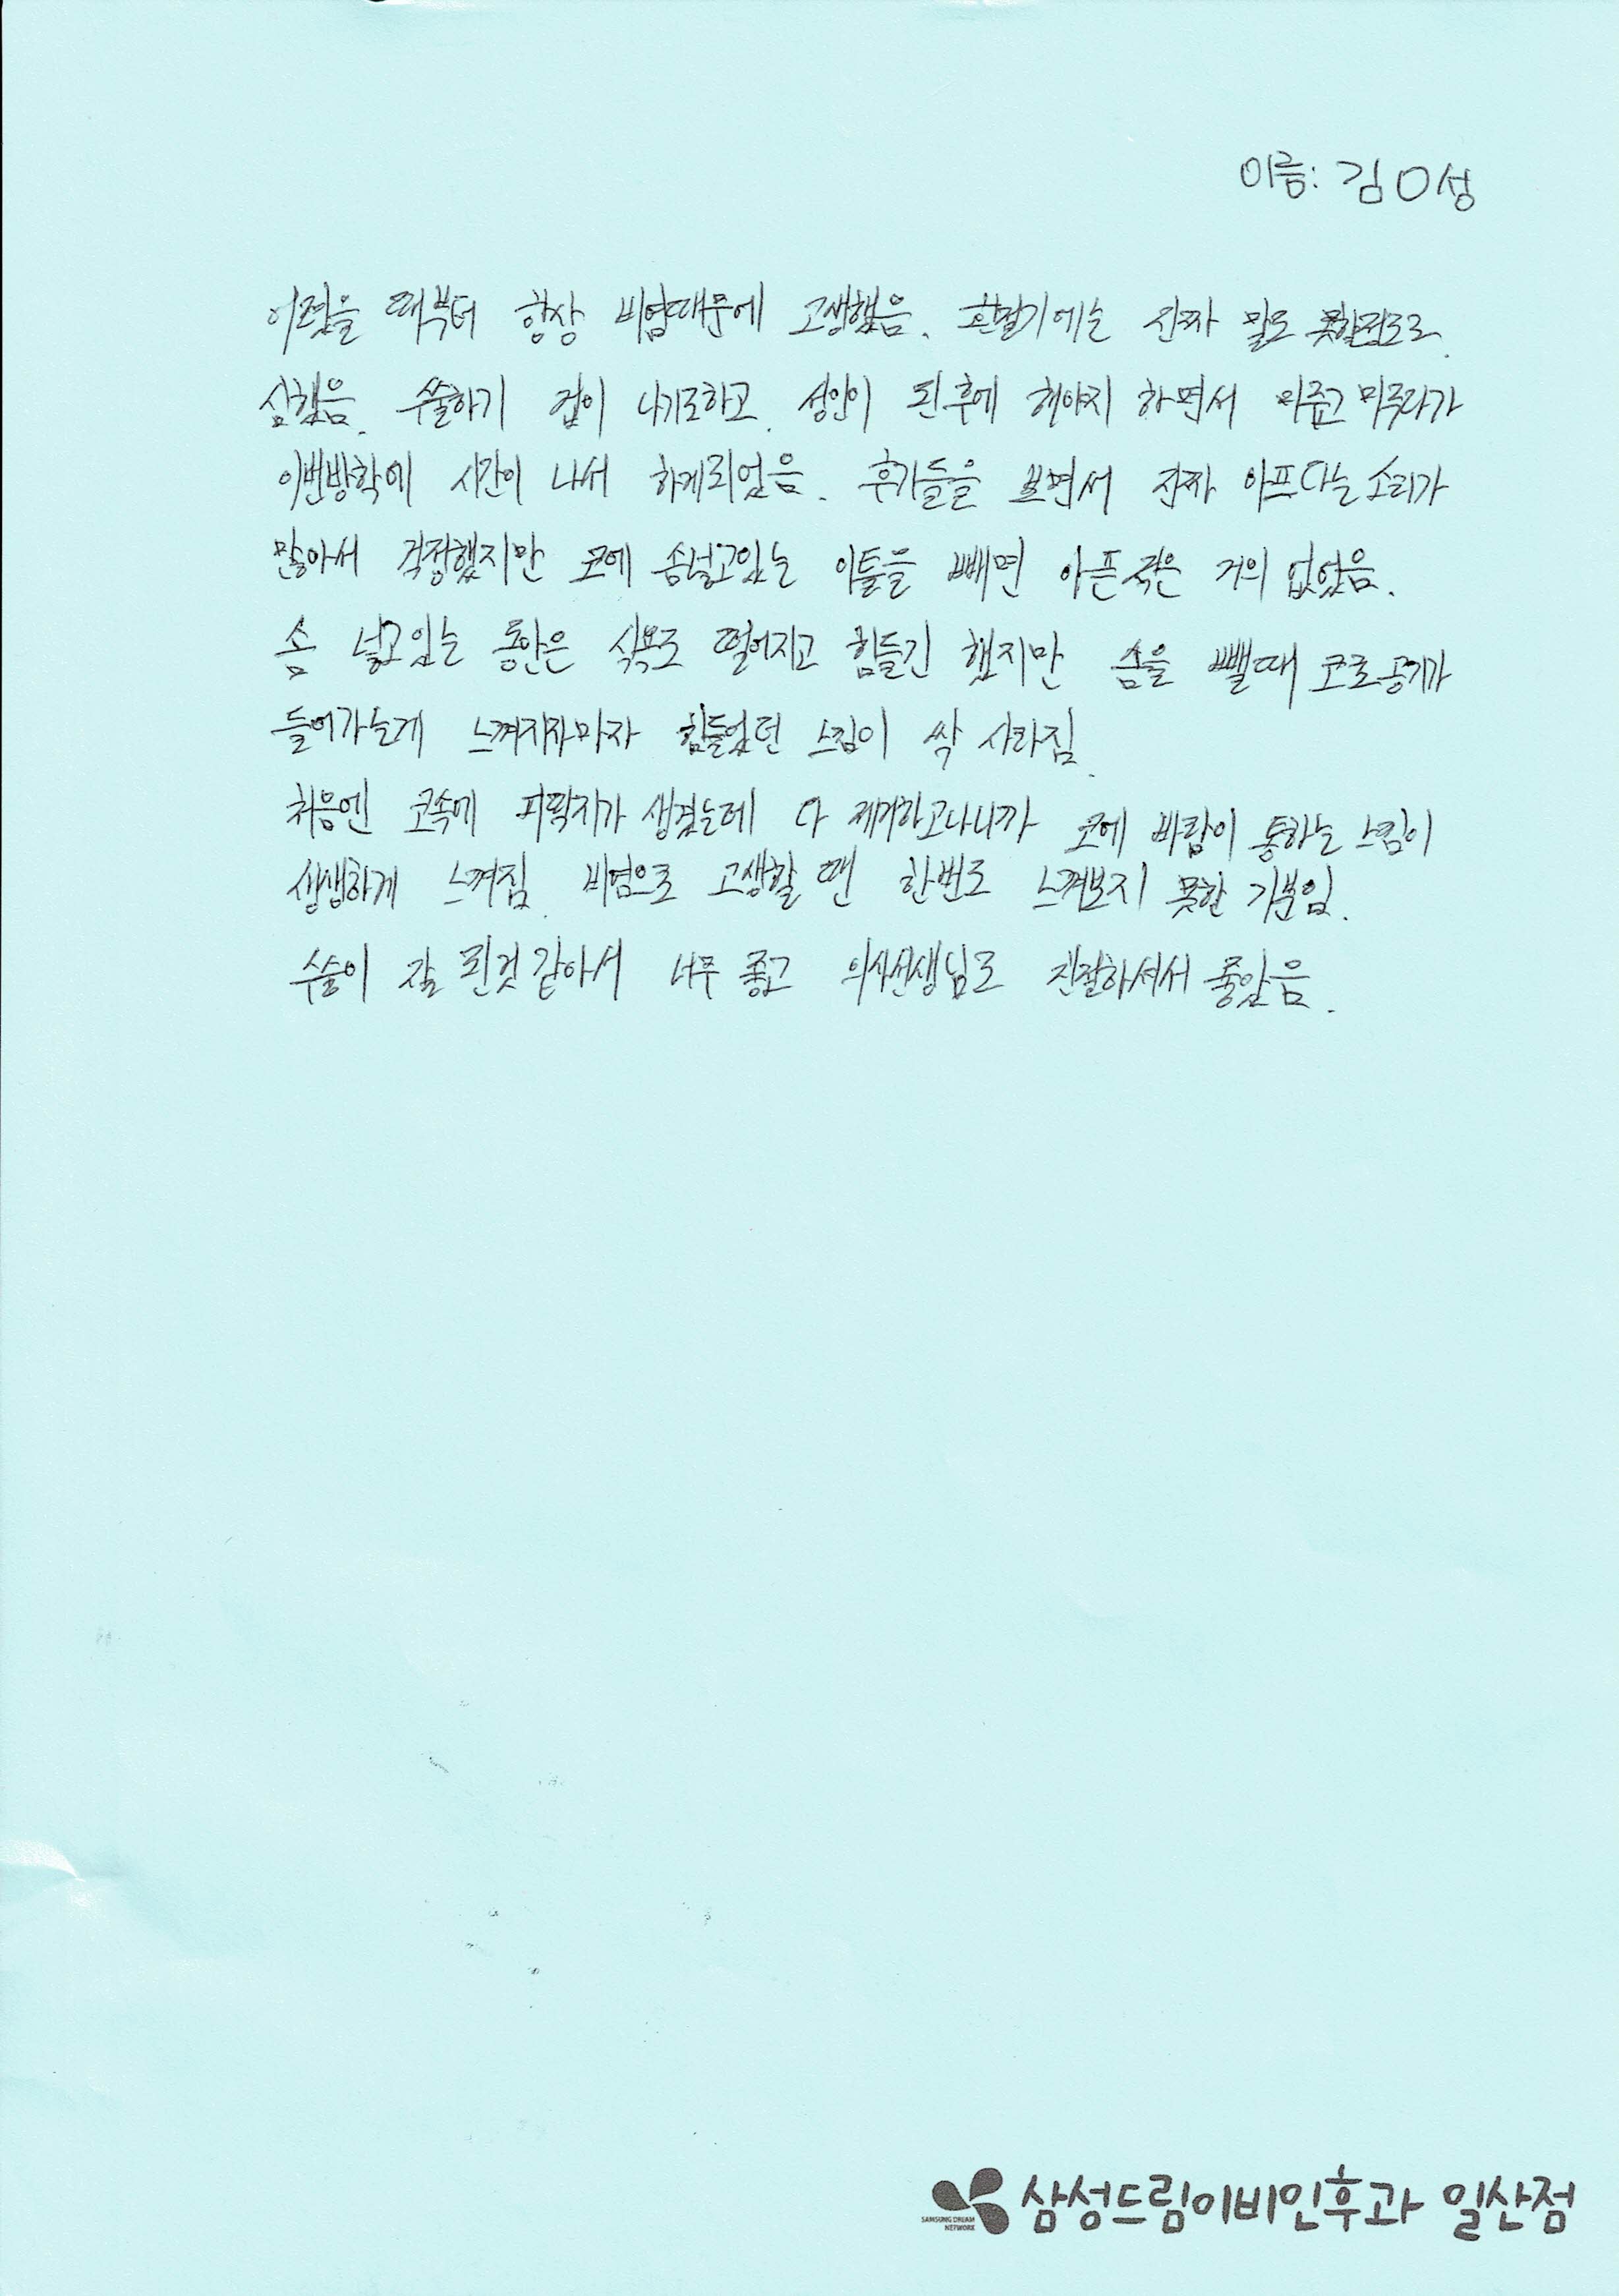 이름: 김O성
어렸을 때부터 항상 비염때문에 고생했음. 환절기에는 진짜 말도 못할정도로
심했음. 수술하기 겁이 나기도하고 성인이 된후에 해야지 하면서 미루고 미루다가
이번방학에 시간이 나서 하게되었음. 후기들을 보면서 진짜 아프다는 소리가
많아서 걱정했지만 코에 솜넣고있는 이틀을 빼면 아픈적은 거의 없었음.
솜 넣고있는 동안은 식욕도 떨어지고 힘들긴 했지만 솜을 뺄때 코로 공기가
들어가는게 느껴지자마자 힘들었던 느낌이 싹 사라짐.
처음엔 코속에 피딱지가 생겼는데 다 제거하고나니까 코에 바람이 통하는 느낌이
생생하게 느껴짐. 비염으로 고생할 땐 한번도 느껴보지 못한 기분임.
수술이 잘 된것 같아서 너무 좋고 의사선생님도 친절하셔서 좋았음.
SAMSUNG DREAM
NETWORK
삼성드림이비인후과 일산점